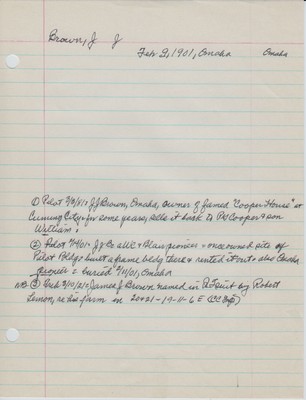 Brown, J J
Feb 2, 1901, Omaha Omaha
① Pilot J J Brown, Omaha, owner of famed "Cooper House" at
Cuming City for some years, sells it back to P. Cooper & son
William.
② Pilot J J B a W.C. & Blair pioneer & once owned site of
Pilot Bldg & built a frame bldg there & rented it out & also Omaha
pioneer = buried Omaha
③ James J Brown named in suit by Robert
Lemon, re his farm in 20 & 21-19-11-6 E